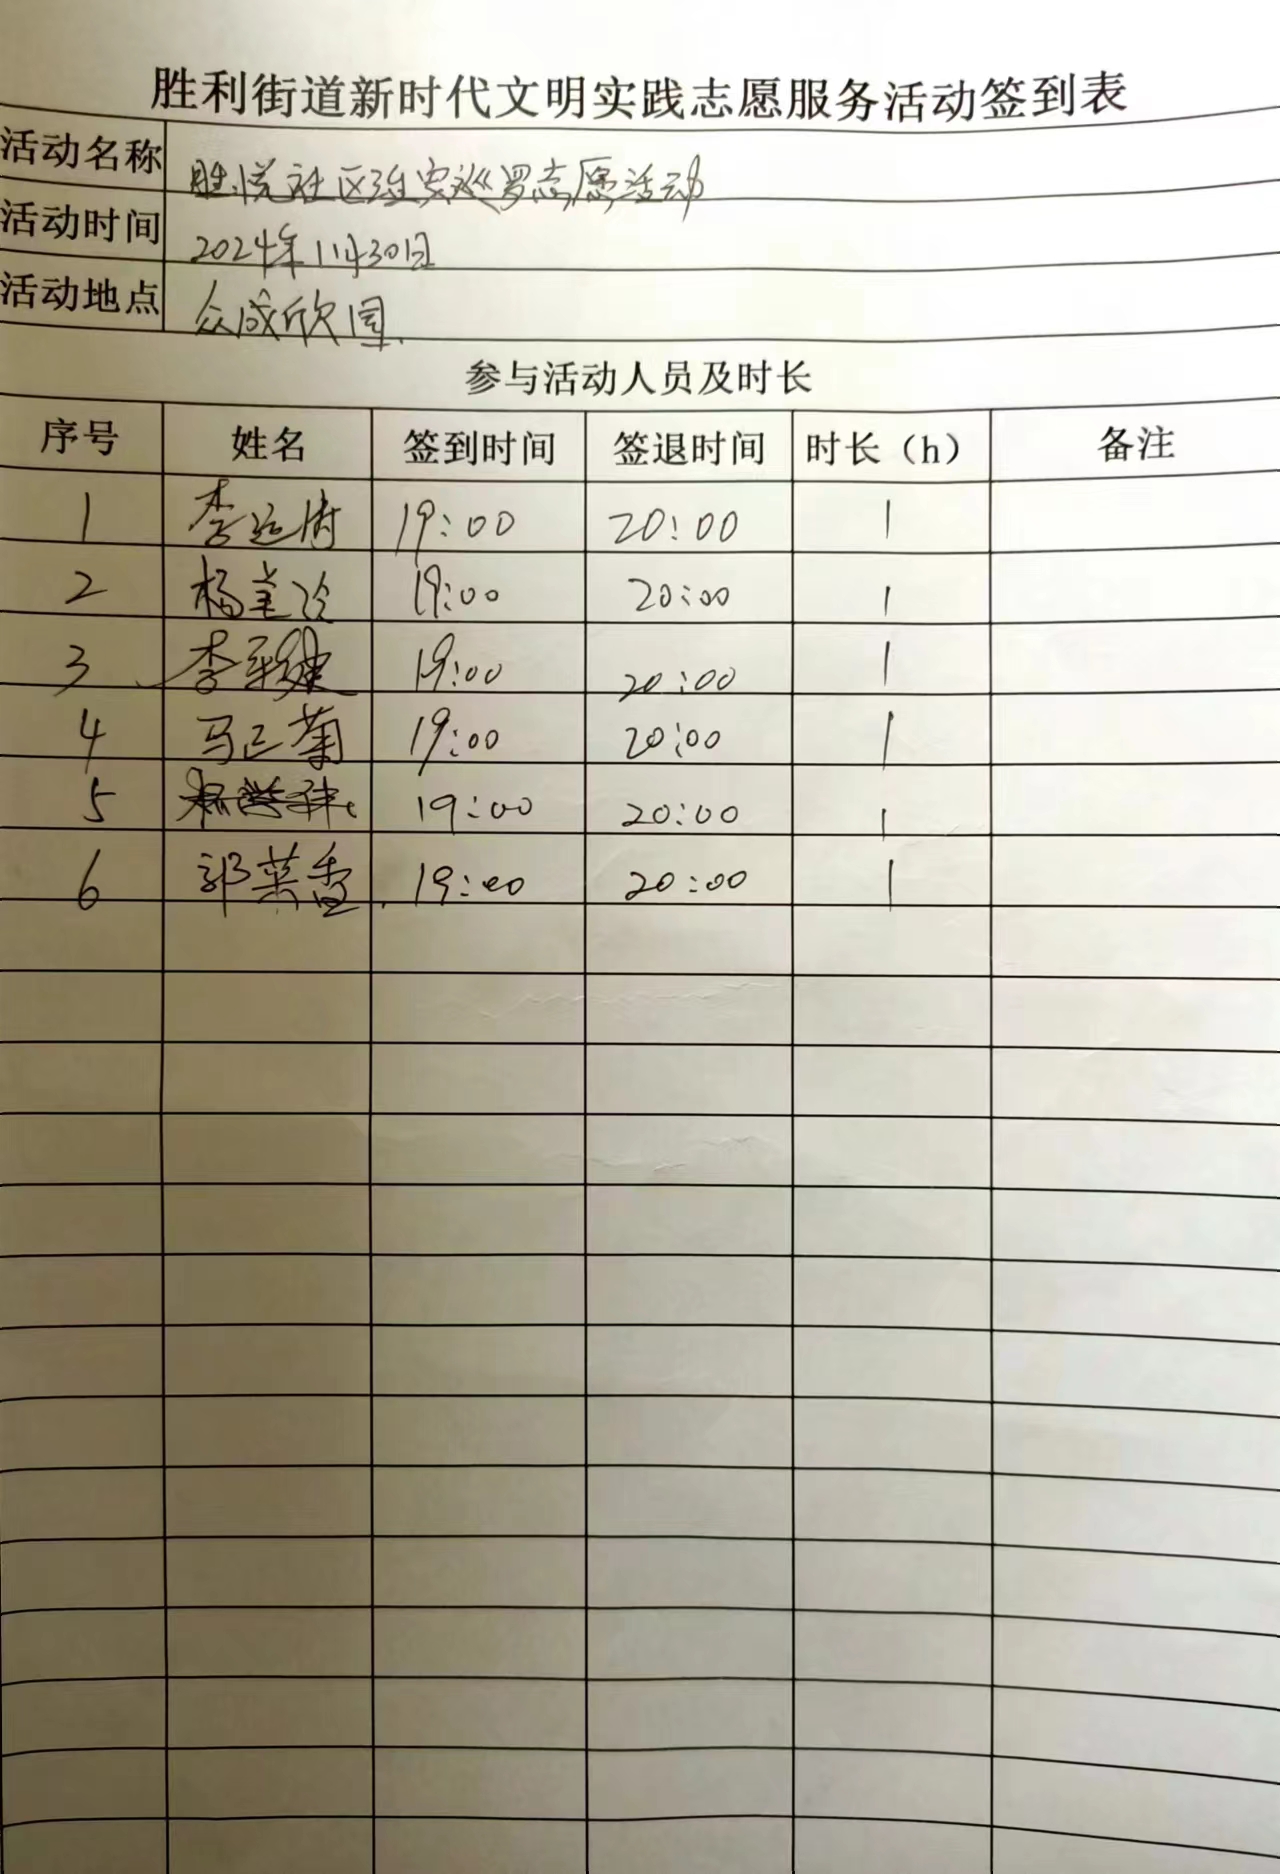 胜利街道新时代文明实践志愿服务活动签到表
活动名称 胜悦社区治安巡罗志愿活动
活动时间 2024年11月30日
活动地点 众成欣园
参与活动人员及时长
序号 姓名 签到时间 签退时间 时长（h） 备注
1 李 19:00 20:00 1
2 杨 19:00 20:00 1
3 李 19:00 20:00 1
4 马正菊 19:00 20:00 1
5 19:00 20:00 1
6 郭菜香 19:00 20:00 1